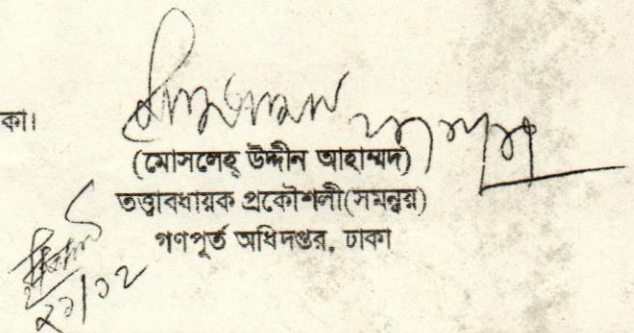 কা।
(মোসলেহ্ উদ্দীন আহাম্মদ)
তত্ত্বাবধায়ক প্রকৌশলী(সমন্বয়)
গণপূর্ত অধিদপ্তর, ঢাকা
২১/১২